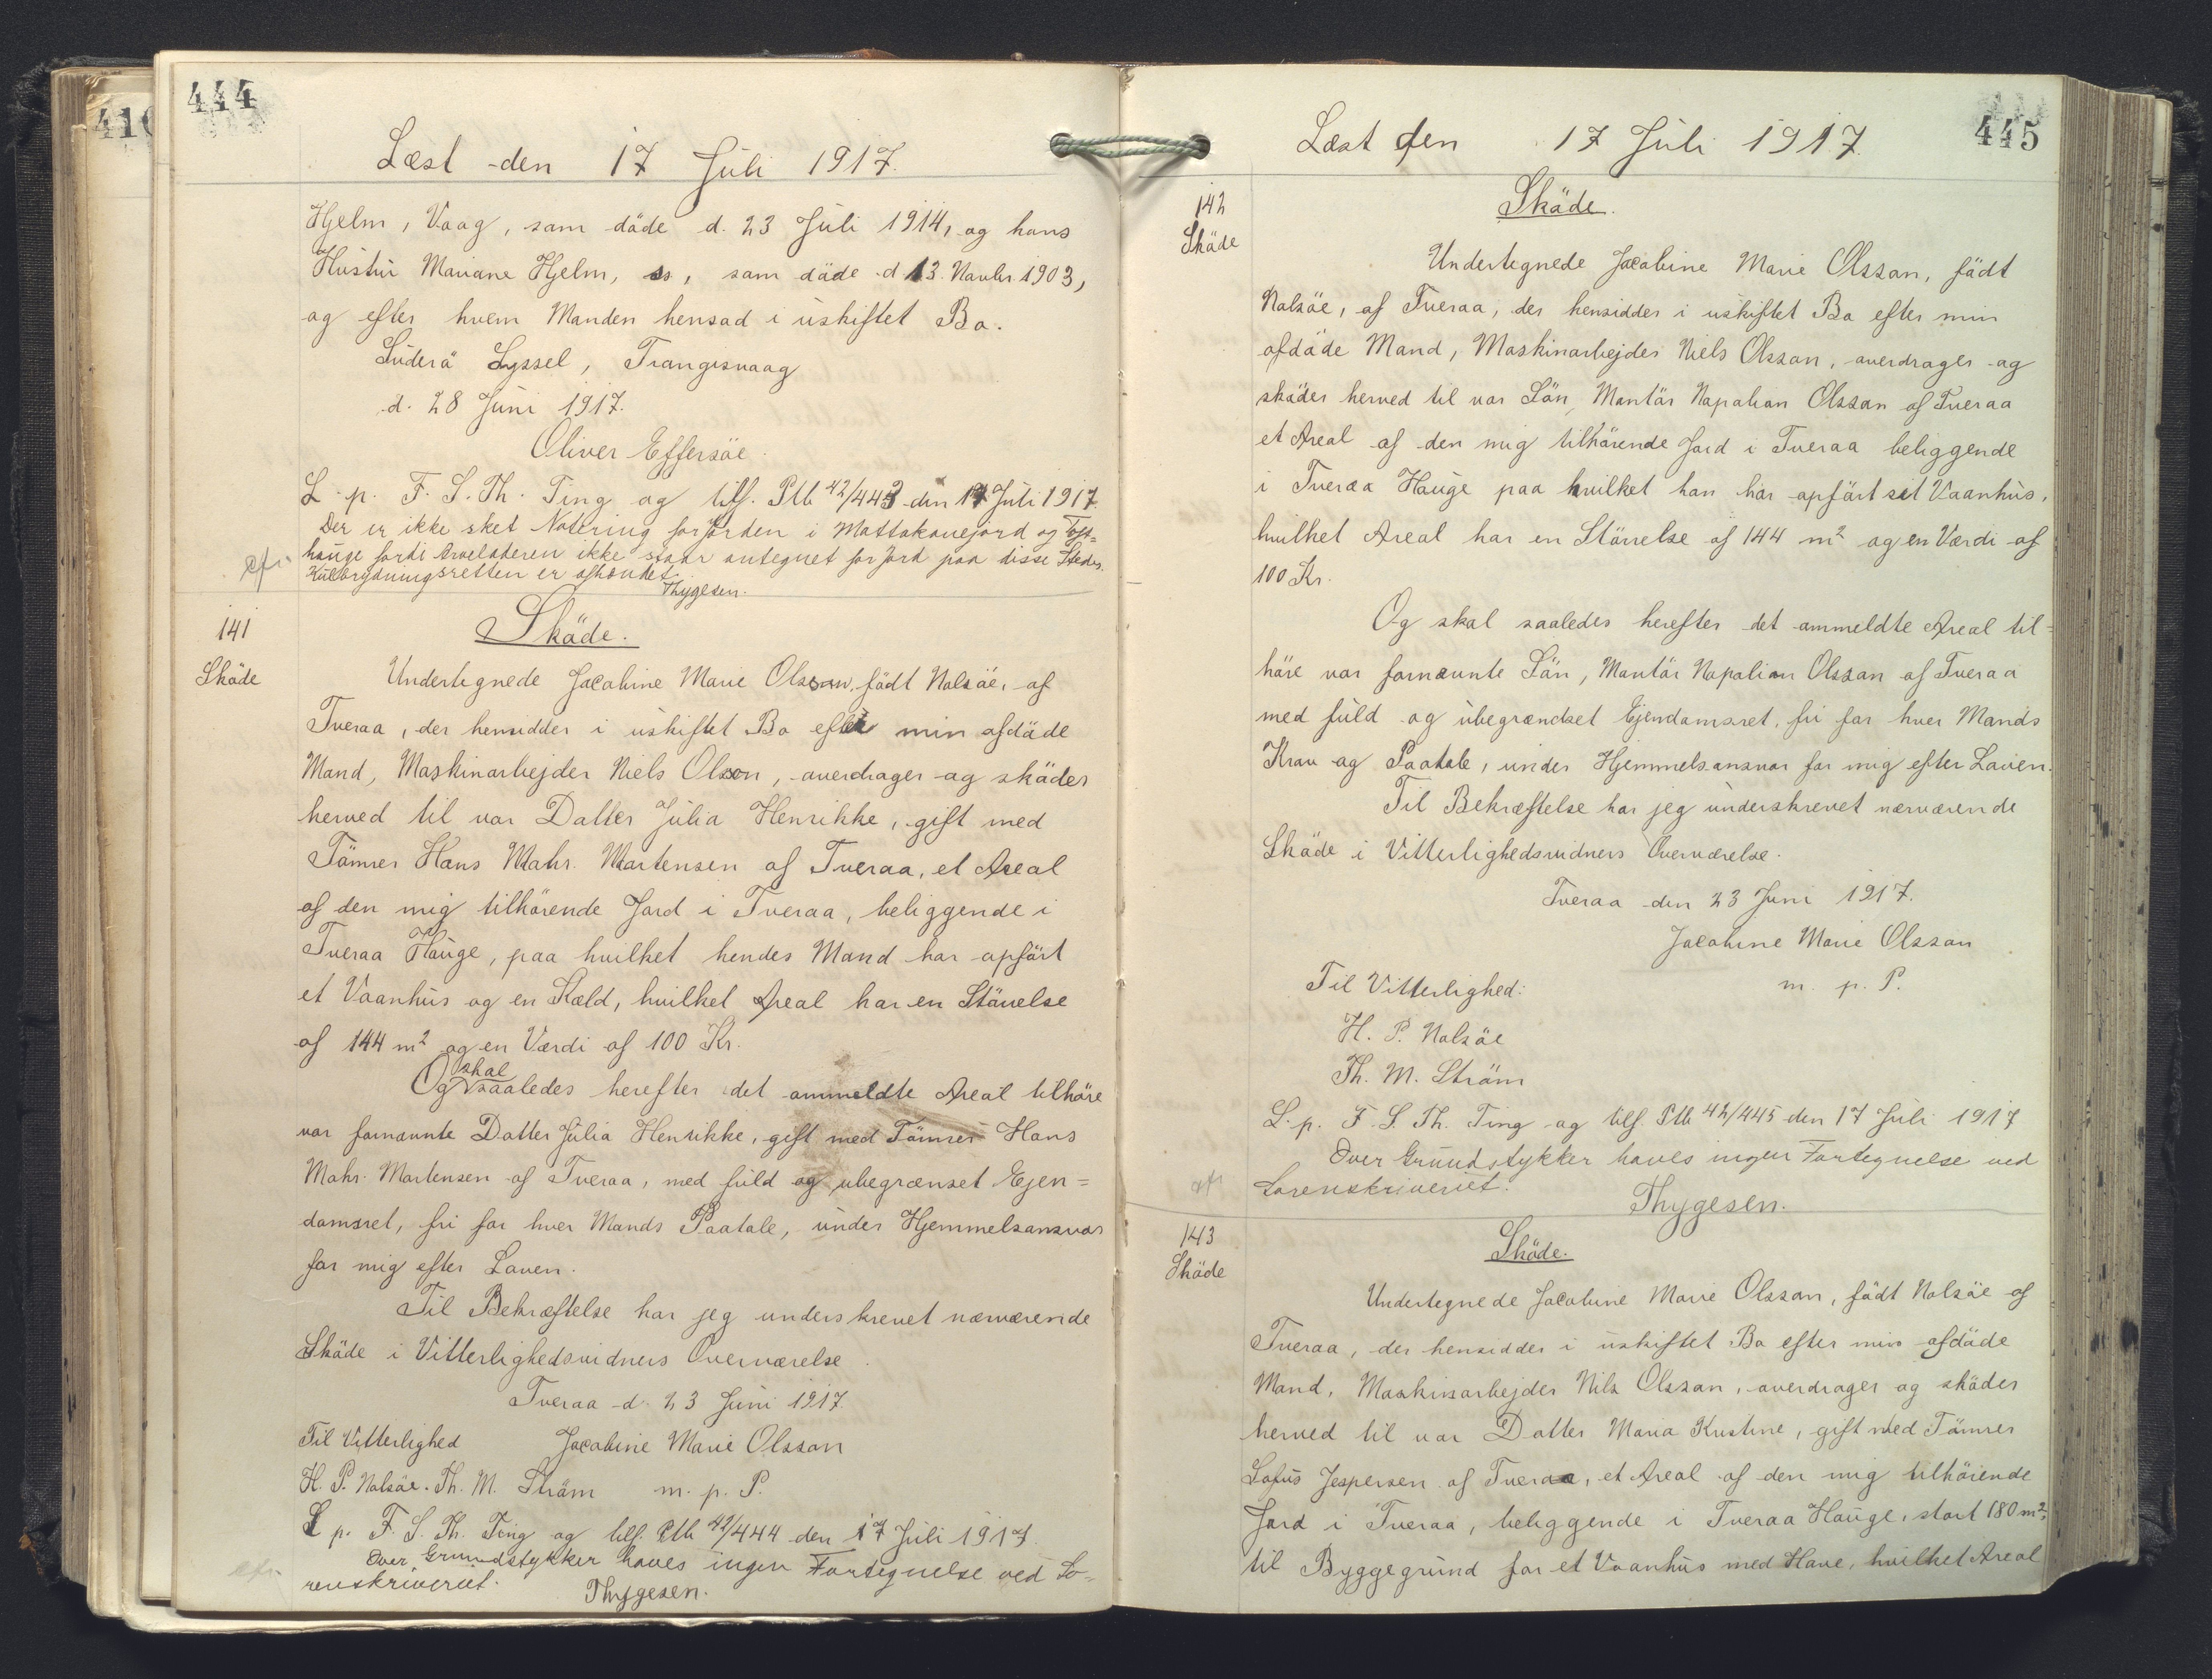 410
444
Læst den 17 Juli 1917.
Hjelm, Vaag, som döde d. 23 Juli 1914, og hans
Hustru Mariane Hjelm, ss, som döde d 13. Novbr. 1903,
og efter hvem Manden hensad i uskiftet Bo.
Suderö Syssel, Trangisvaag
d. 28 Juni 1917.
Oliver Effersöe.
L. p. F. S. Th. Ting og tilf. Ptb 42/443 den 17 Juli 1917.
Der er ikke sket Notering for Jorden i Mattakonejord og Toft=
hauge fordi Arveladeren ikke staar antegnet for Jord paa disse Steder.
Kulbrydningsretten er afhændet.
Thygesen.
141
Sköde
Sköde.
Undertegnede Jacobine Marie Olsson, födt Nolsöe, af
Tveraa, der hensidder i uskiftet Bo efter min afdöde
Mand, Maskinarbejder Niels Olsson, overdrager og sköder
herved til vor Datter Julia Henrikke, gift med
Tömrer Hans Mohr. Mortensen af Tveraa, et Areal
af den mig tilhörende Jord i Tveraa, beliggende i
Tveraa Hauge, paa hvilket hendes Mand har opfört
et Vaanhus og en Kæld, hvilket Areal har en Störrelse
af 144 m² og en Værdi af 100 Kr.
Og skal saaledes herefter det ommeldte Areal tilhöre
vor fornævnte Datter Julia Henrikke, gift med Tömrer Hans
Mohr. Mortensen af Tveraa, med fuld og ubegrænset Ejen=
domsret, fri for hver Mands Paatale, under Hjemmelsansvar
for mig efter Loven.
Til Bekræftelse har jeg underskrevet nærværende
Sköde i Vitterlighedsvidners Overværelse.
Tveraa d. 23 Juni 1917.
Til Vitterlighed Jacobine Marie Olsson
H. P. Nolsöe. Th. M. Ström m. p. P.
L p. F. S. Th. Ting og tilf. Ptb 42/444 den 17 Juli 1917.
Over Grundstykker haves ingen Fortegnelse ved So=
renskriveriet.
Thygesen.
445
Læst den 17 Juli 1917.
142
Sköde
Sköde.
Undertegnede Jacobine Marie Olsson, födt
Nolsöe, af Tveraa, der hensidder i uskiftet Bo efter min
afdöde Mand, Maskinarbejder Niels Olsson, overdrager og
sköder herved til vor Sön, Montör Napolion Olsson af Tveraa
et Areal af den mig tilhörende Jord i Tveraa beliggende
i Tveraa Hauge paa hvilket han har opfört sit Vaanhus,
hvilket Areal har en Störrelse af 144 m² og en Værdi af
100 Kr.
Og skal saaledes herefter det ommeldte Areal til=
höre vor fornævnte Sön, Montör Napolion Olsson af Tveraa
med fuld og ubegrændset Ejendomsret, fri for hver Mands
Krav og Paatale, under Hjemmelsansvar for mig efter Loven.
Til Bekræftelse har jeg underskrevet nærværende
Sköde i Vitterlighedsvidners Overværelse.
Tveraa den 23 Juni 1917.
Jacobine Marie Olsson
Til Vitterlighed: m. p. P.
H. P. Nolsöe
Th. M. Ström
L. p. F. S. Th. Ting og tilf. Ptb 42/445 den 17 Juli 1917
Over Grundstykker haves ingen Fortegnelse ved
Sorenskriveriet.
Thygesen.
143
Sköde
Sköde.
Undertegnede Jacobine Marie Olsson, födt Nolsöe af
Tveraa, der hensidder i uskiftet Bo efter min afdöde
Mand, Maskinarbejder Nils Olsson, overdrager og sköder
herved til vor Datter Maria Kristine, gift med Tömrer
Sofus Jespersen af Tveraa, et Areal af den mig tilhörende
Jord i Tveraa, beliggende i Tveraa Hauge, stort 180 m²,
til Byggegrund for et Vaanhus med Have, hvilket Areal